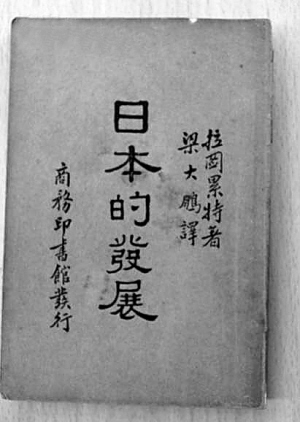 拉岡累特著
梁大鵬譯
日本的發展
商務印書館發行